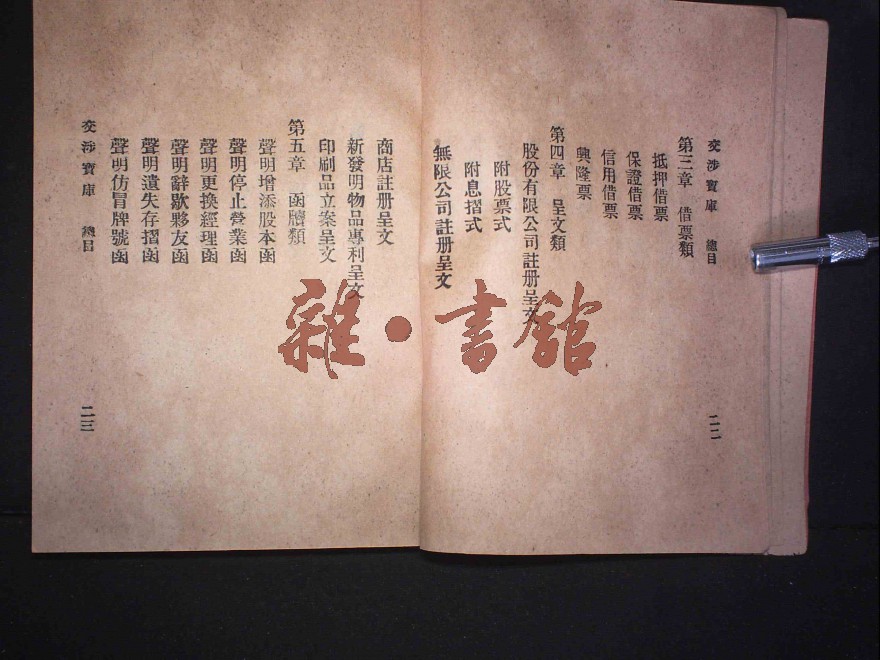 交涉寶庫 總目 二二
第三章 借票類
抵押借票
保證借票
信用借票
興隆票
第四章 呈文類
股份有限公司註册呈文
附股票式
附息摺式
無限公司註册呈文
商店註册呈文
新發明物品專利呈文
印刷品立案呈文
第五章 函牘類
聲明增添股本函
聲明停止營業函
聲明更換經理函
聲明辭歇夥友函
聲明遺失存摺函
聲明仿冒牌號函
交涉寶庫 總目 二三
雜·書館